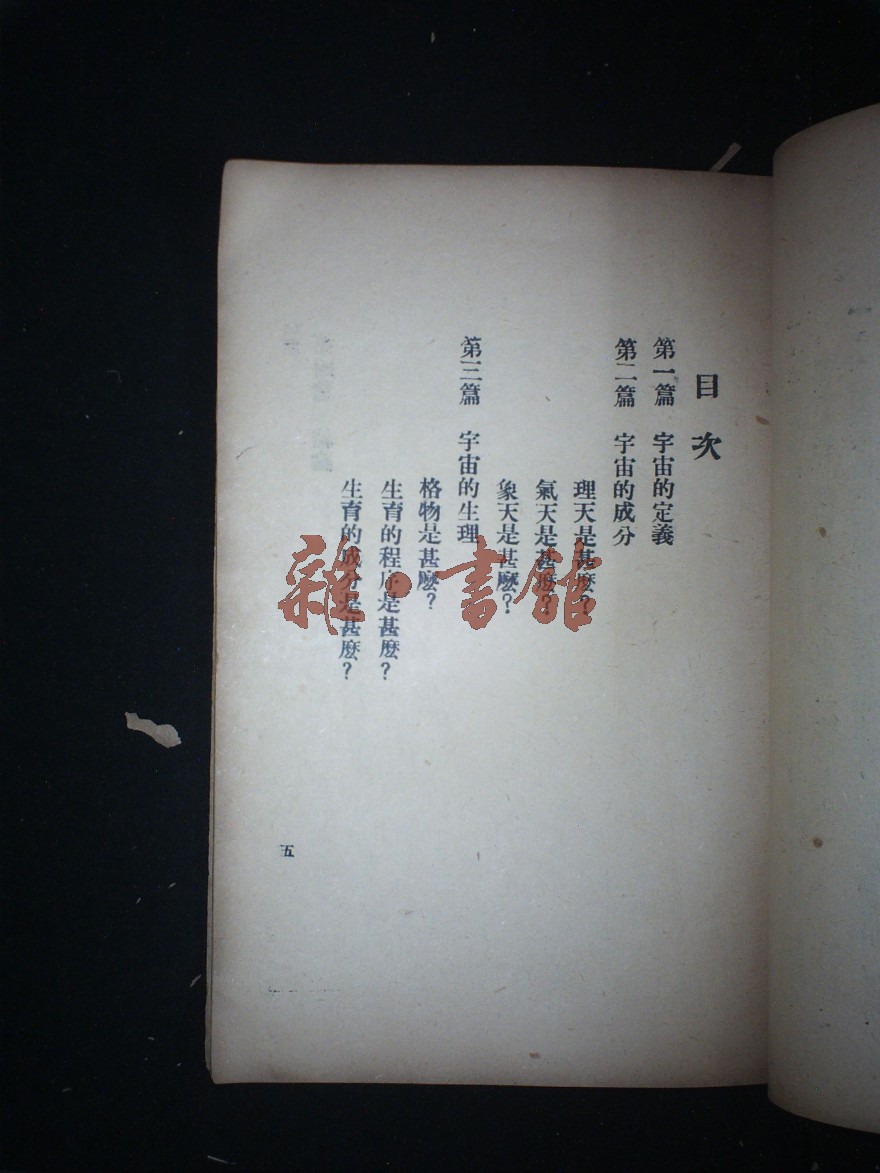 目次
第一篇 宇宙的定義
第二篇 宇宙的成分
理天是甚麽?
氣天是甚麽?
象天是甚麽?
第三篇 宇宙的生理
格物是甚麽?
生育的程序是甚麽?
生育的成分是甚麽?
五
雜·書館